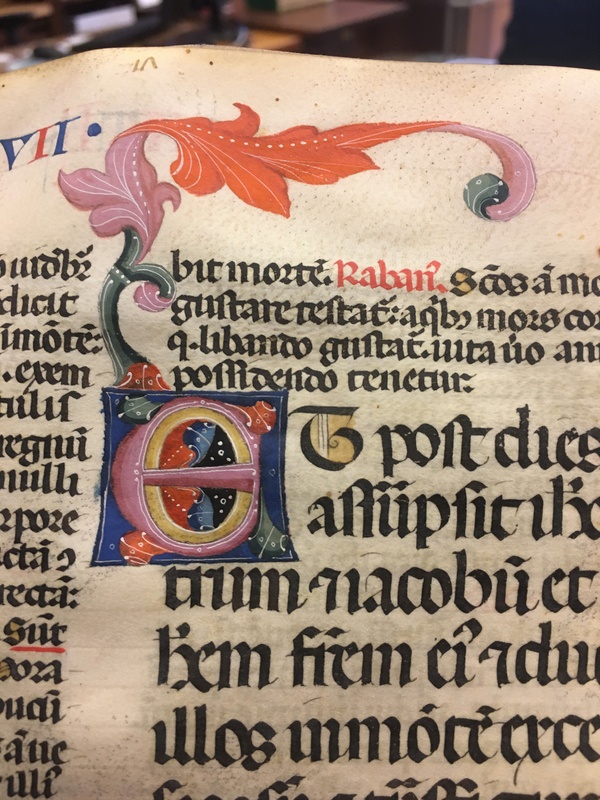 VII·
dicit
īmōtē:
. exem
tulis
regnū
nulli
rpore
rectā:
Sūt
bit mortē. Raban᷒. Sc̄os ā mo
gustare testat᷒: a q̄bꝫ mors cor
q̄. libando gustat᷒. uita ūo ani
possidendo tenetur:
ET post dies
assūpsit ih̄c
trum ⁊ iacobū et
h̄em fr̄em ei᷒ ⁊ duc
illos in mōtē exce